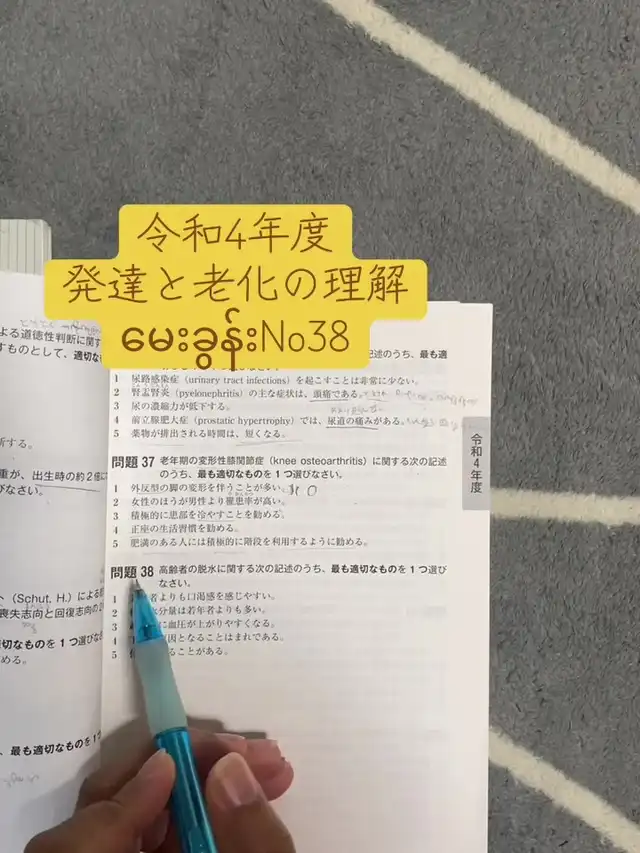 令和4年度
発達と老化の理解
မေးခွန်းNo38
よる道徳性判断に関す
すものとして、適切な
記述のうち、最も適
1 尿路感染症（urinary tract infections）を起こすことは非常に少ない。
2 腎盂腎炎（pyelonephritis）の主な症状は、頭痛である。
3 尿の濃縮力が低下する。
4 前立腺肥大症（prostatic hypertrophy）では、尿道の痛みがある。
5 薬物が排出される時間は、短くなる。
令和4年度
断する。
重が、出生時の約2倍に
びなさい。
問題 37 老年期の変形性膝関節症（knee osteoarthritis）に関する次の記述
のうち、最も適切なものを1つ選びなさい。
1 外反型の脚の変形を伴うことが多い。
2 女性のほうが男性より罹患率が高い。
3 積極的に患部を冷やすことを勧める。
4 正座の生活習慣を勧める。
5 肥満のある人には積極的に階段を利用するように勧める。
問題 38 高齢者の脱水に関する次の記述のうち、最も適切なものを1つ選び
なさい。
1 者よりも口渇感を感じやすい。
2 水分量は若年者よりも多い。
3 に血圧が上がりやすくなる。
4 因となることはまれである。
5 ることがある。
（Schut, H.）による
喪失志向と回復志向の2
切なものを1つ選びな
める。
、最も適切なものを1つ